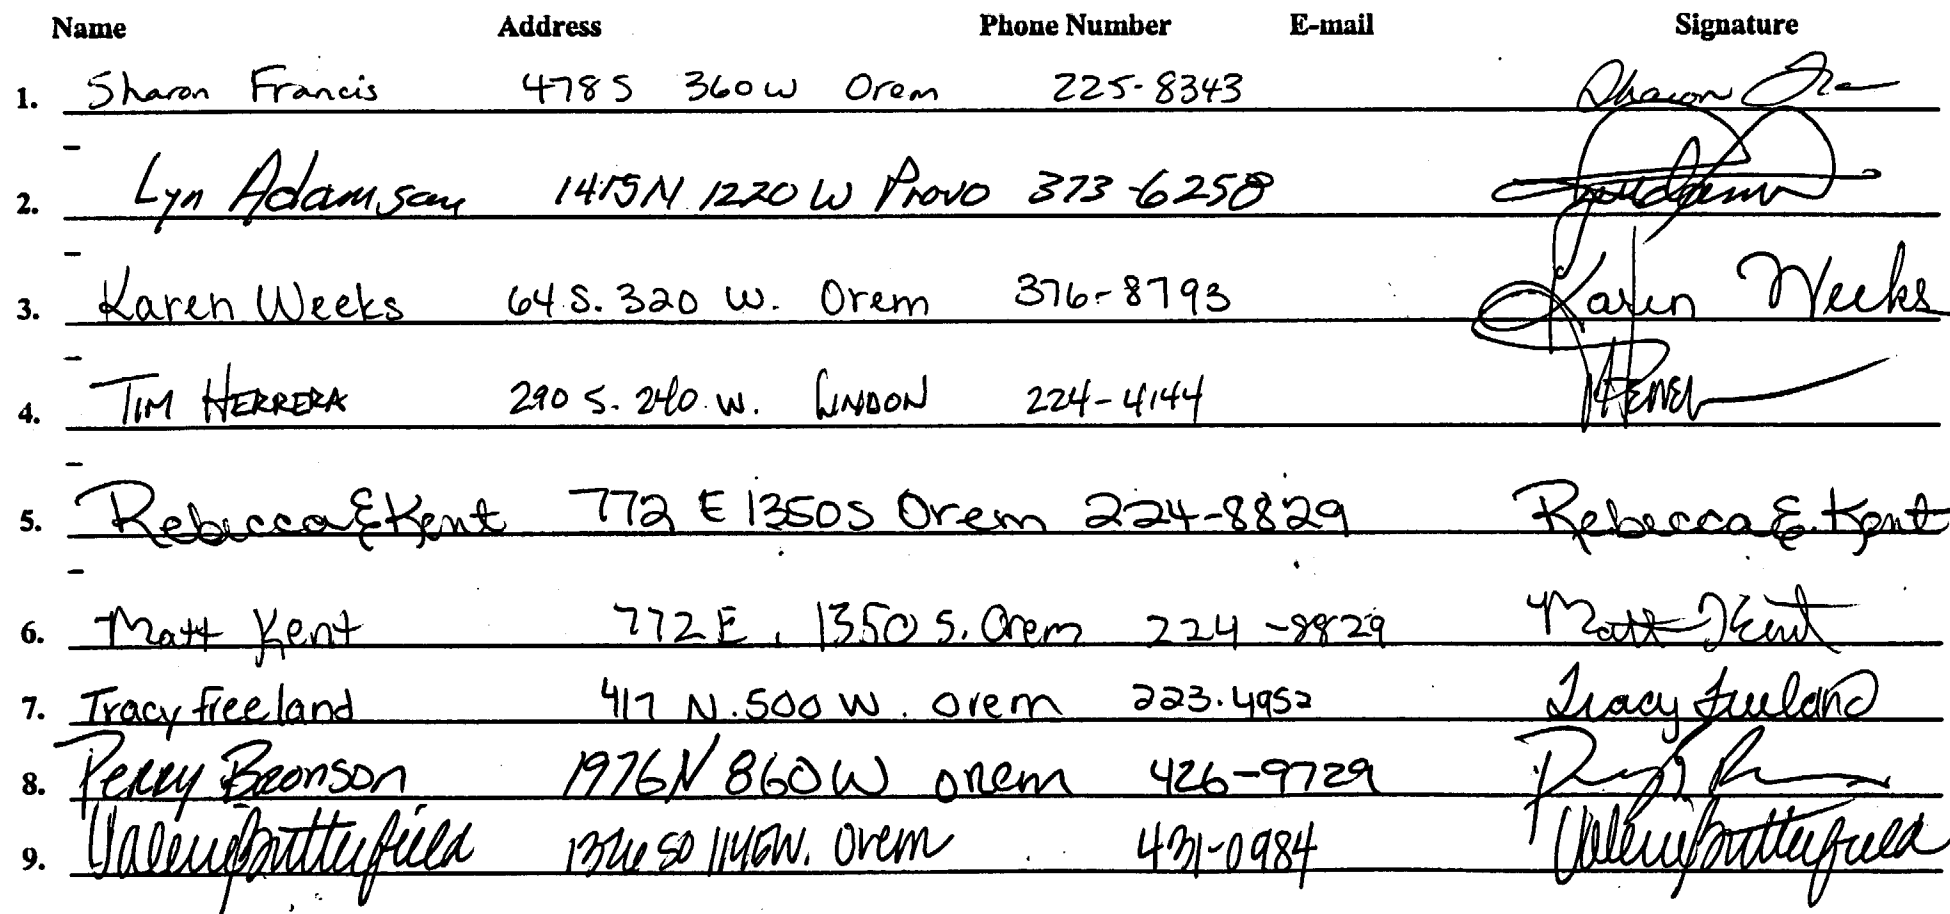 Name Address Phone Number E-mail Signature
1. Sharon Francis 478 S 360 W Orem 225-8343 Sharon
2. Lyn Adamson 1415 N 1220 W Provo 373-6258
3. Karen Weeks 64 S. 320 W. Orem 376-8793 Karen Weeks
4. TIM HERRERA 290 S. 240 W. LINDON 224-4144
5. Rebecca E Kent 772 E 1350 S Orem 224-8829 Rebecca E. Kent
6. Matt Kent 772 E. 1350 S. Orem 224-8829 Matt Kent
7. Tracy Freeland 417 N. 500 W. Orem 223.4952 Tracy Freeland
8. Perry Bronson 1976 N 860 W Orem 426-9729
9. Valerie Butterfield So W. Orem 431-0984 Valerie Butterfield